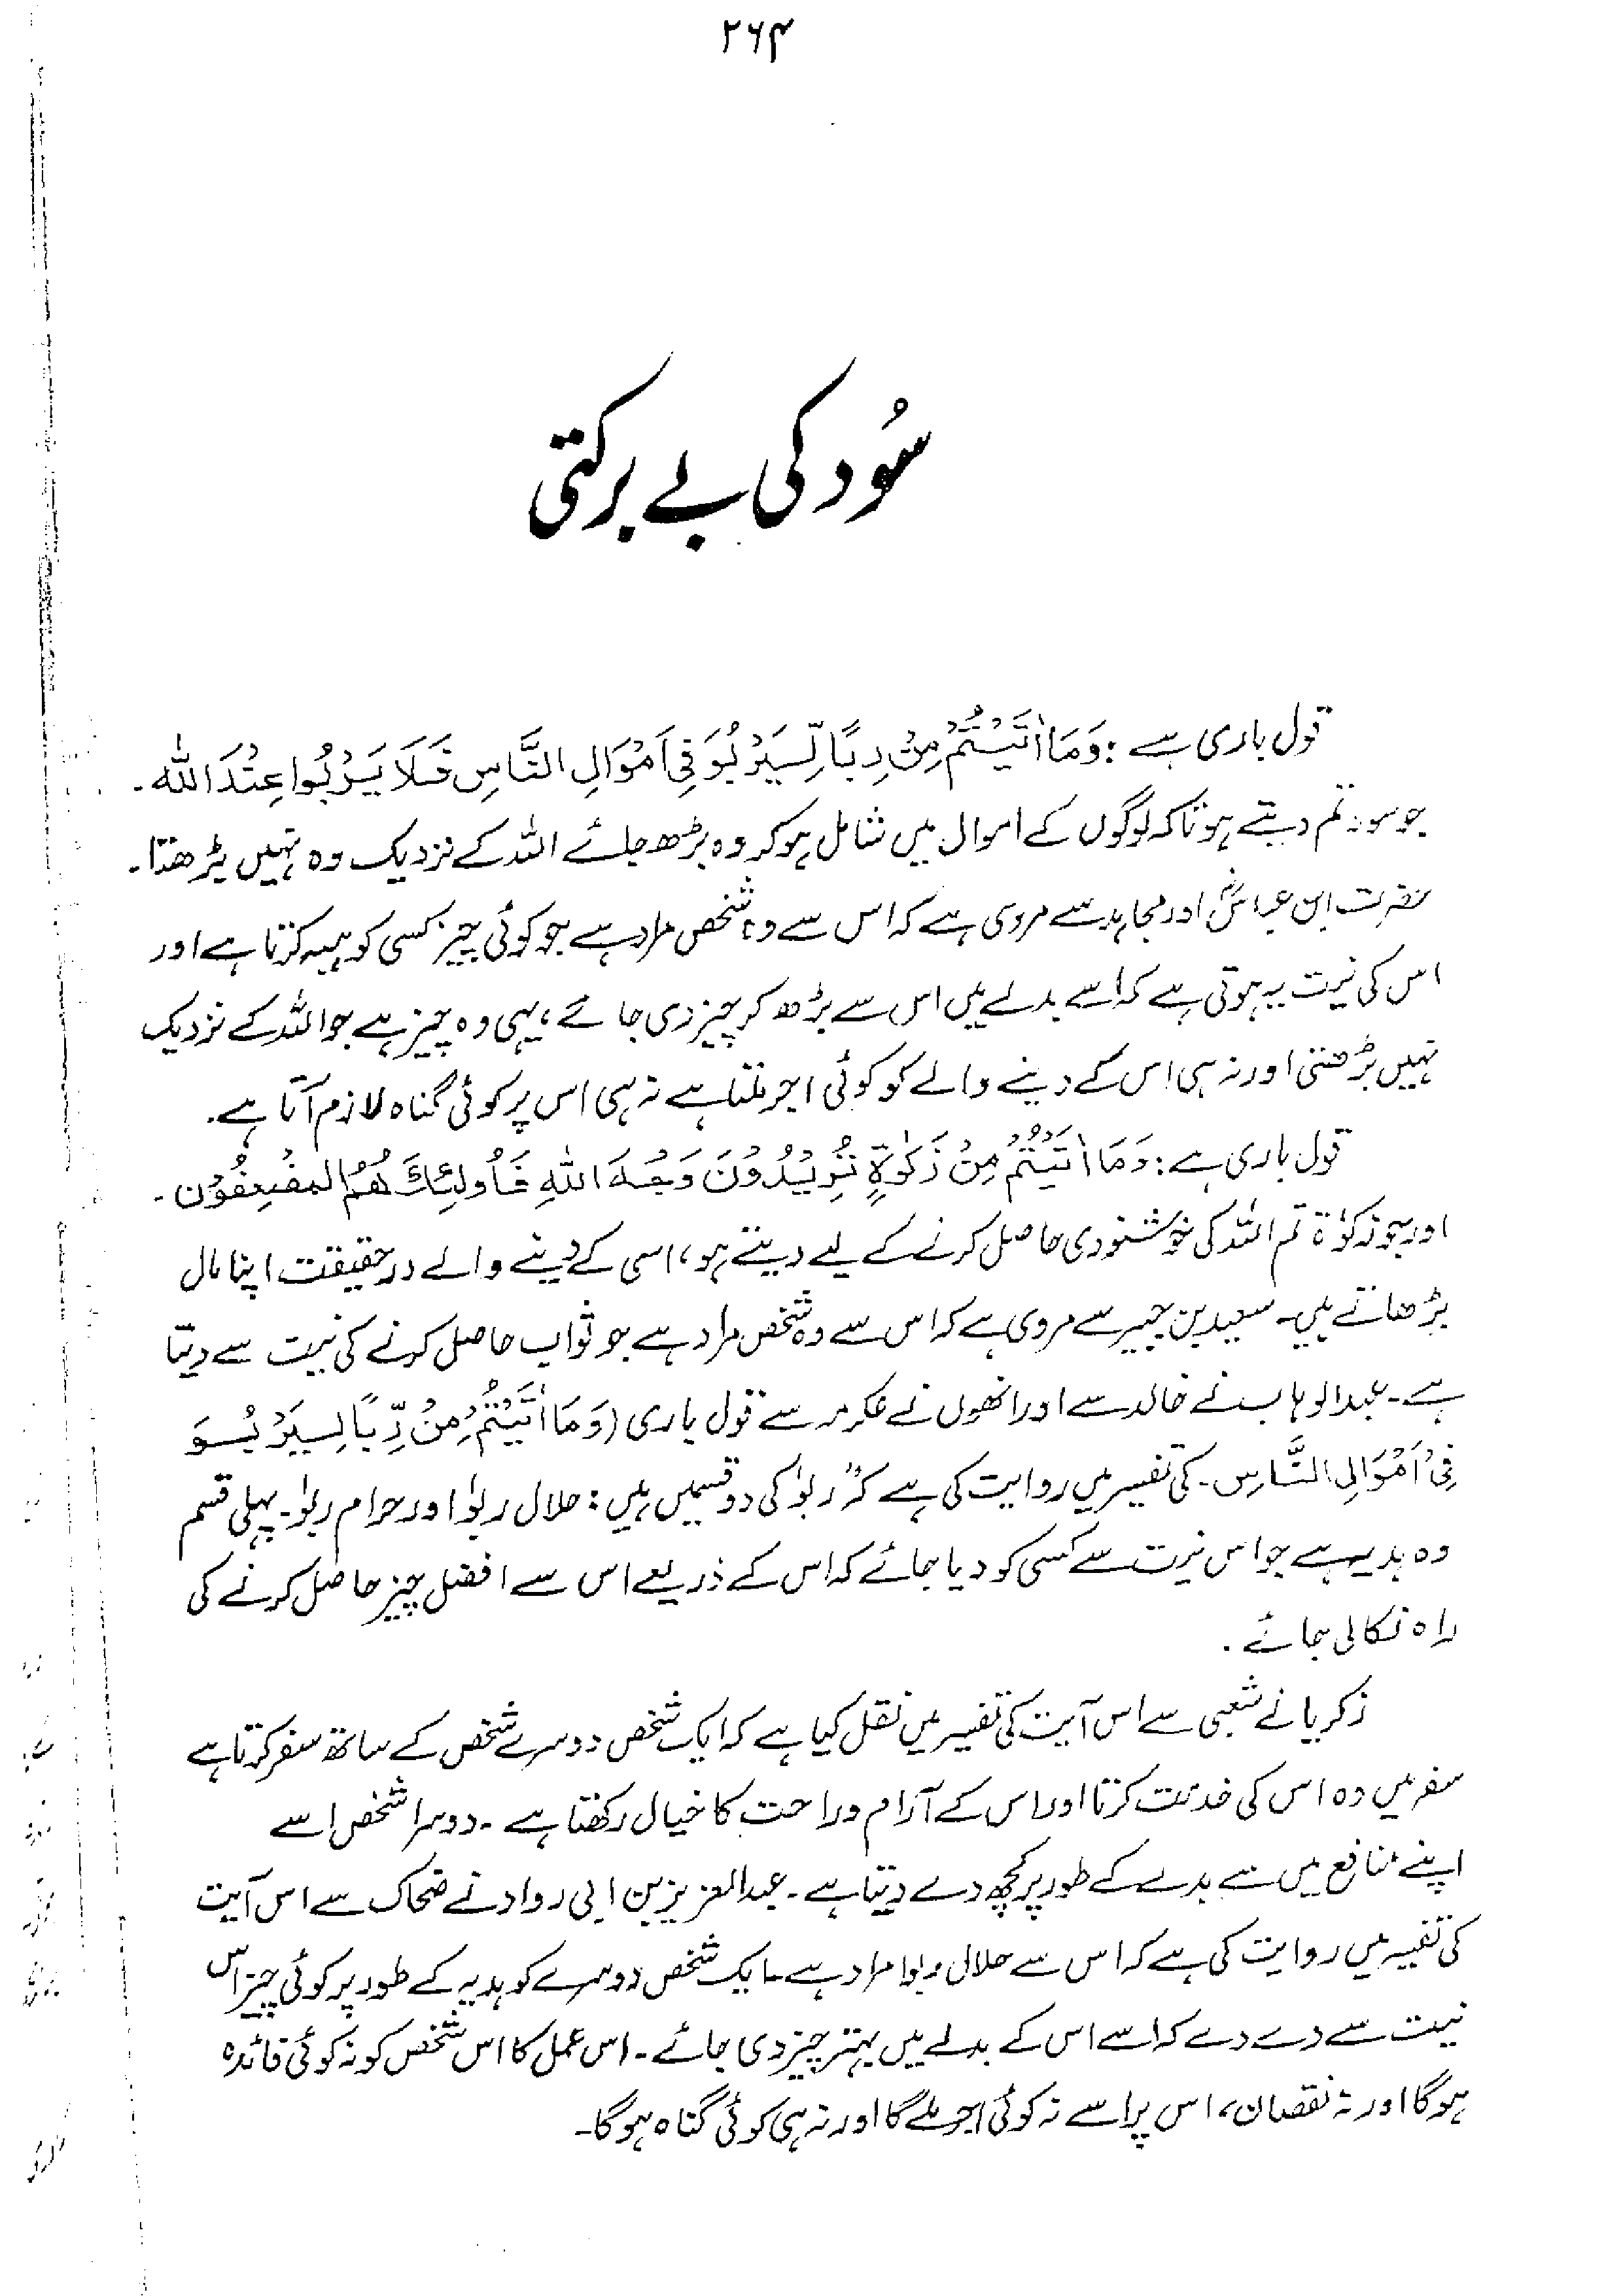 ۲۶۴
سُود کی بے برکتی
قول باری ہے : وَمَا اٰتَیْتُمْ مِنْ رِبًا لِّیَرْبُوَ فِی اَمْوَالِ النَّاسِ فَلَا یَرْبُوا عِنْدَ اللّٰہ ۔
جو سود تم دیتے ہو تاکہ لوگوں کے اموال میں شامل ہو کر وہ بڑھ جائے اللہ کے نزدیک وہ نہیں بڑھتا۔
حضرت ابن عباسؓ اور مجاہد سے مروی ہے کہ اس سے وہ شخص مراد ہے جو کوئی چیز کسی کو ہبہ کرتا ہے اور
اس کی نیت یہ ہوتی ہے کہ اسے بدلے میں اس سے بڑھ کر چیز دی جائے، یہی وہ چیز ہے جو اللہ کے نزدیک
نہیں بڑھتی اور نہ ہی اس کے دینے والے کو کوئی اجر ملتا ہے نہ ہی اس پر کوئی گناہ لازم آتا ہے۔
قول باری ہے : وَمَا اٰتَیْتُمْ مِنْ زَکٰوۃٍ تُرِیْدُوْنَ وَجْہَ اللّٰہِ فَاُولٰئِکَ ھُمُ المضْعِفُوْن ۔
اور جو زکوٰۃ تم اللہ کی خوشنودی حاصل کرنے کے لیے دیتے ہو، اسی کے دینے والے درحقیقت اپنا مال
بڑھاتے ہیں۔ سعید بن جبیر سے مروی ہے کہ اس سے وہ شخص مراد ہے جو ثواب حاصل کرنے کی نیت سے دیتا
ہے۔ عبدالوہاب نے خالد سے اور انھوں نے عکرمہ سے قول باری (وَمَا اٰتَیْتُمْ مِنْ رِّبًا لِیَرْبُوَ
فِیْ اَمْوَالِ النَّاسِ۔ کی تفسیر میں روایت کی ہے کہ "ربوٰ کی دو قسمیں ہیں : حلال ربوٰ اور حرام ربوٰ۔ پہلی قسم
وہ ہدیہ ہے جو اس نیت سے کسی کو دیا جائے کہ اس کے ذریعے اس سے افضل چیز حاصل کرنے کی
راہ نکالی جائے۔
زکریا نے شعبی سے اس آیت کی تفسیر میں نقل کیا ہے کہ ایک شخص دوسرے شخص کے ساتھ سفر کرتا ہے
سفر میں وہ اس کی خدمت کرتا اور اس کے آرام و راحت کا خیال رکھتا ہے۔ دوسرا شخص اسے
اپنے منافع میں سے بدلے کے طور پر کچھ دے دیتا ہے۔ عبدالعزیز بن ابی رواد نے ضحاک سے اس آیت
کی تفسیر میں روایت کی ہے کہ اس سے حلال ربوا مراد ہے۔ ایک شخص دوسرے کو ہدیہ کے طور پر کوئی چیز اس
نیت سے دے دے کہ اسے اس کے بدلے میں بہتر چیز دی جائے۔ اس عمل کا اس شخص کو نہ کوئی فائدہ
ہوگا اور نہ نقصان، اس پر اسے نہ کوئی اجر ملے گا اور نہ ہی کوئی گناہ ہوگا۔